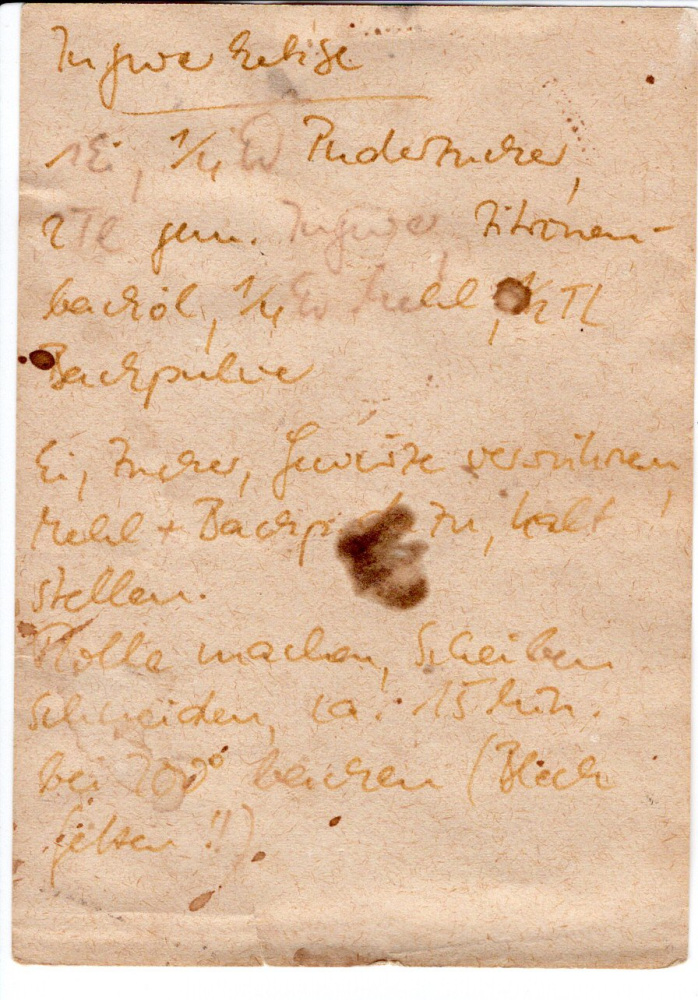 Ingwerkekse
1 Ei, 1/4 Puderzucker,
2 Tl gem. Ingwer, Zitronen-
backöl, 1/4 Mehl, 1/2 TL
Backpulver
Ei, Zucker, Gewürze verrühren,
Mehl + Backp. zu, kalt
stellen.
Rolle machen, Scheiben
schneiden, ca. 15 Min.
bei 200° backen (Blech
fetten!!)